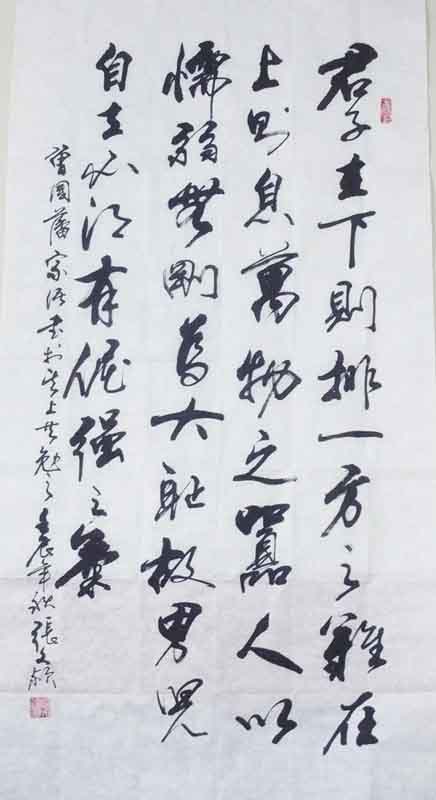 君子在下則排一方之難在
上則息萬物之囂人以
懦弱無剛為大恥故男兒
自立必須有倔強之氣
曾國藩家語書於上共勉之壬辰年秋張文